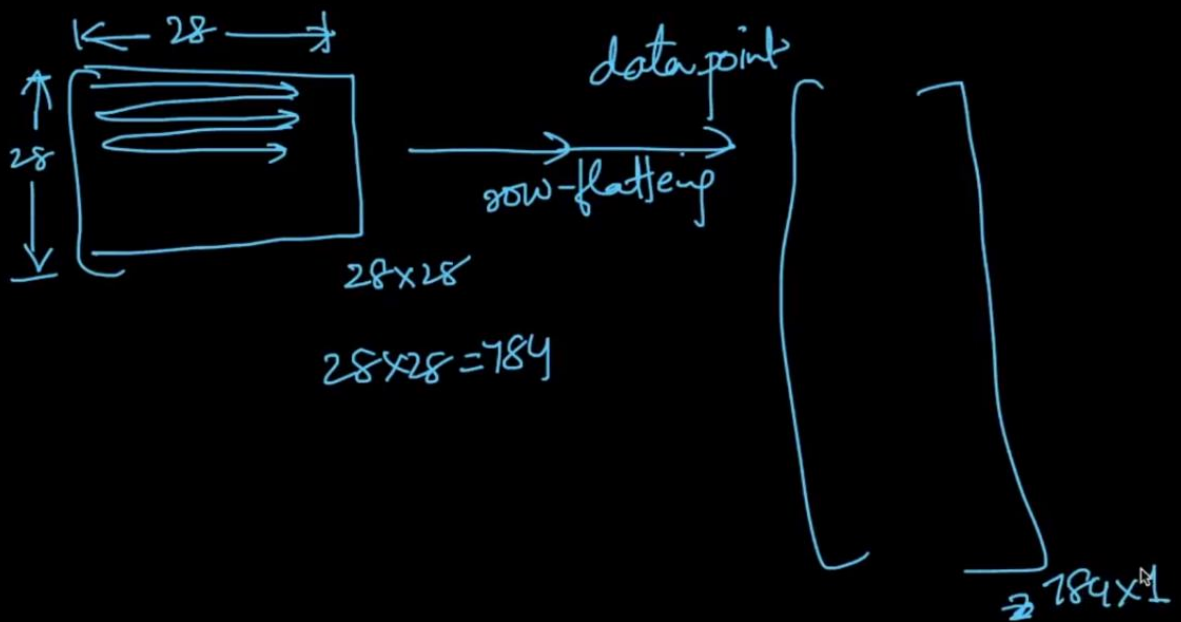 28
data point
28
row-flatteing
28×28
28×28=784
784×1